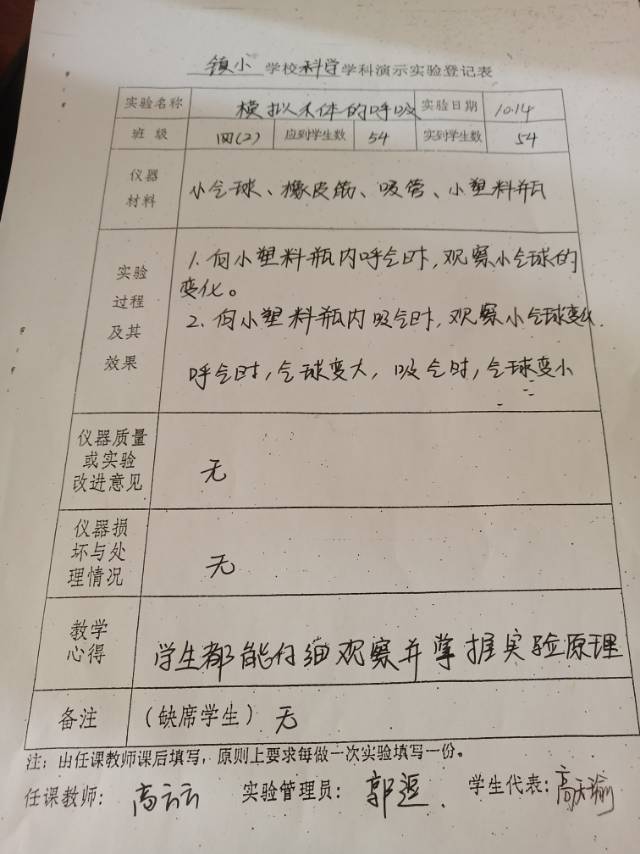 镇小学校科学学科演示实验登记表
实验名称 模拟人体的呼吸 实验日期 10.14
班 级 四(2) 应到学生数 54 实到学生数 54
仪器
材料
小气球、橡皮筋、吸管、小塑料瓶
实验
过程
及其
效果
1. 向小塑料瓶内呼气时,观察小气球的
变化。
2. 向小塑料瓶内吸气时,观察小气球变化.
呼气时,气球变大,吸气时,气球变小
仪器质量
或实验
改进意见
无
仪器损
坏与处
理情况
无
教学
心得
学生都能仔细观察并掌握实验原理
备注 (缺席学生) 无
注:由任课教师课后填写,原则上要求每做一次实验填写一份。
任课教师: 高云云 实验管理员: 郭逞. 学生代表: 高天瑜